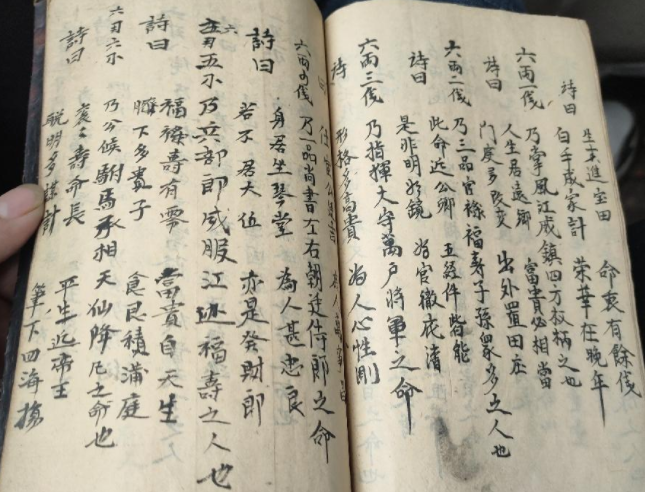 生来進宝田 命裏有餘伐
詩曰 白手成家計 榮華在晚年
六両一伐 乃掌風江威鎮四方权柄之也
詩曰 人生居遠鄉 富貴必相當
門庭多改变 出外置田庄
六両二伐 乃三品官禄福寿子孫衆多之人也
詩曰 此命近公卿 五経件皆能
是非明如鏡 為官徹底清
六両三伐 乃指揮大守萬户將軍之命
詩 形格多高貴 為人心性剛
六両四伐 乃一品尚書左右朝廷侍郎之命
詩曰 身居坐琴堂 為人甚忠良
若不居大位 亦是發財郎
六両五不 乃兵部郎威服江 福壽之人也
詩曰 福禄壽有零 富貴自天生
膝下多貴子 食足積滿庭
六刃六不 乃公候駙馬承相天仙降凡之命也
詩曰 寿命長 平生近帝王
聪明多謀計 筆下四海揚